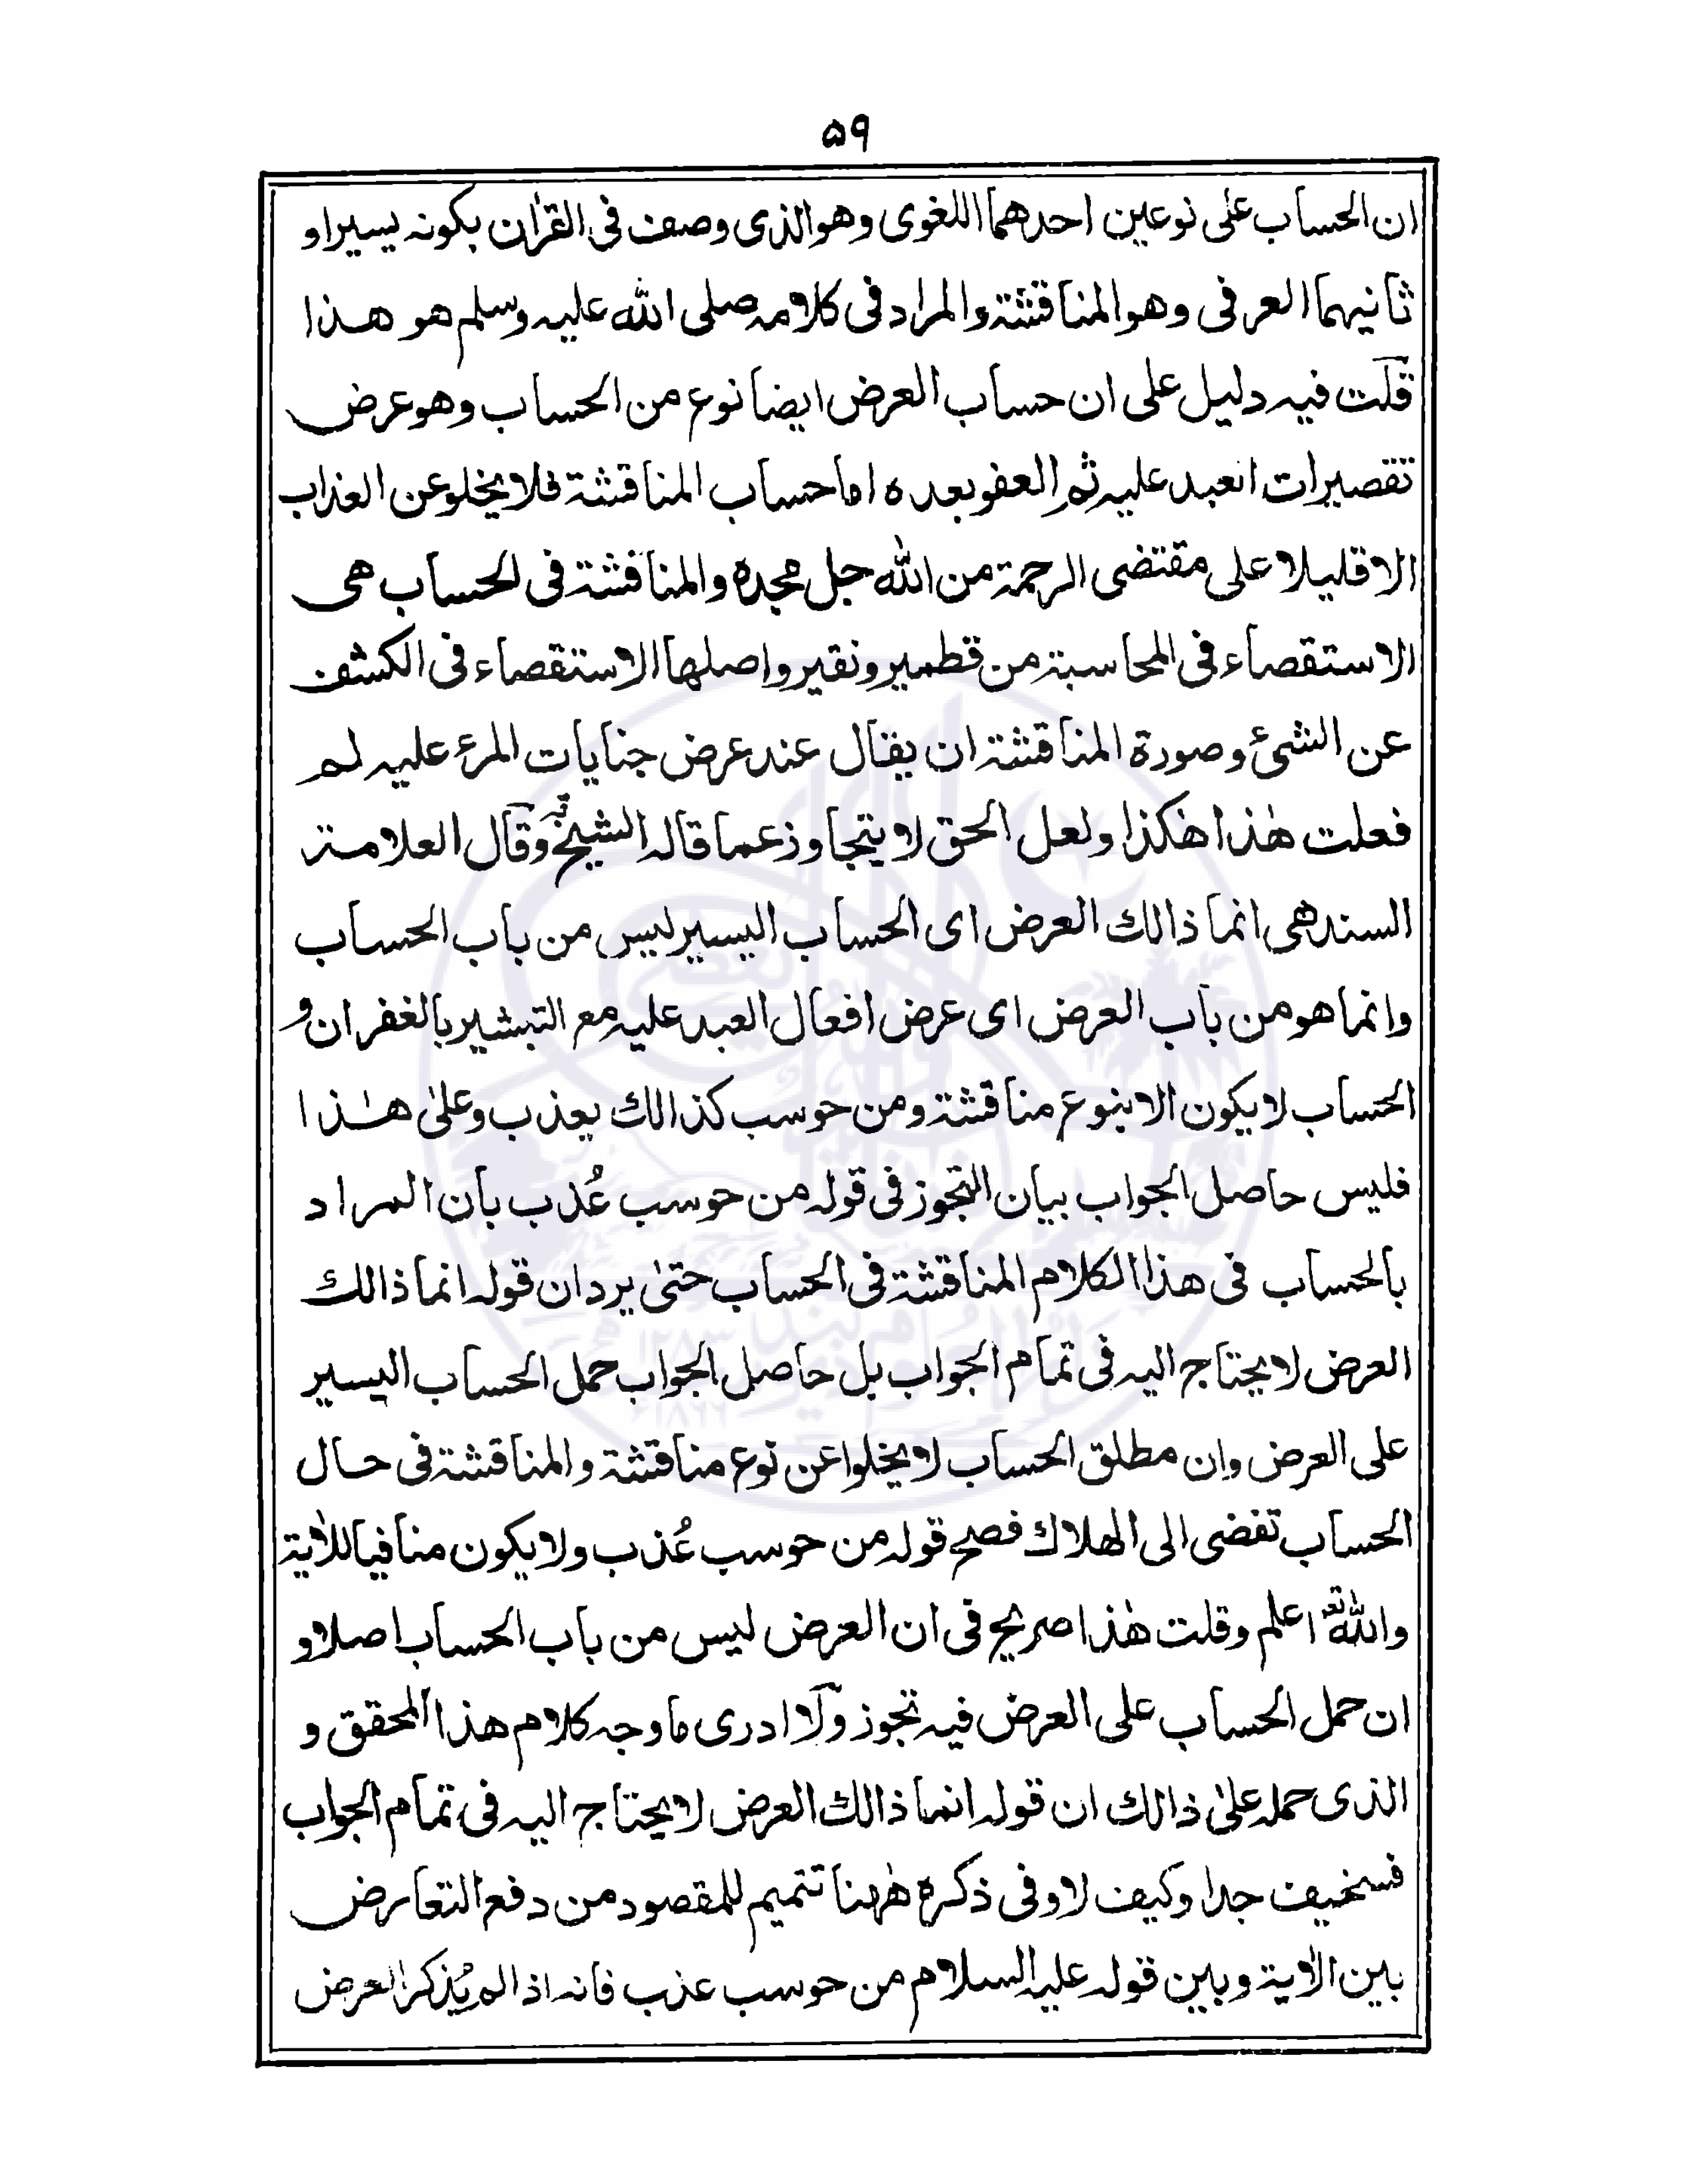 ۵۹
ان الحساب علی نوعین احدهما اللغوی وهوالذی وصف فی القرٰان بکونه یسیرا و
ثانیهما العرفی وهوالمناقشة والمراد فی کلامه صلی الله علیه وسلم هو هذا
قلت فیه دلیل علی ان حساب العرض ایضا نوع من الحساب وهو عرض
تقصیرات العبد علیه ثم العفو بعده اما حساب المناقشة فلا یخلو عن العذاب
الا قلیلا علی مقتضی الرحمة من الله جل مجده والمناقشة فی الحساب هی
الاستقصاء فی المحاسبة من قطمیر ونقیر واصلها الاستقصاء فی الکشف
عن الشیٔ وصورة المناقشة ان یقال عند عرض جنایات المرء علیه لم
فعلت هٰذا هٰکذا ولعل الحق لا یتجاوز عما قاله الشیخ وقال العلامة
السندهی انما ذالك العرض ای الحساب الیسیر لیس من باب الحساب
وانما هو من باب العرض ای عرض افعال العبد علیه مع التبشیر بالغفران و
الحساب لا یکون الا بنوع مناقشة ومن حوسب کذالك یعذب وعلیٰ هٰذا
فلیس حاصل الجواب بیان التجوز فی قوله من حوسب عُذب بان المراد
بالحساب فی هذا الکلام المناقشة فی الحساب حتیٰ یرد ان قوله انما ذالك
العرض لا یحتاج الیه فی تمام الجواب بل حاصل الجواب حمل الحساب الیسیر
علی العرض وان مطلق الحساب لا یخلوا عن نوع مناقشة والمناقشة فی حال
الحساب تفضی الی الهلاك فصح قوله من حوسب عُذب ولا یکون منافیا للاٰیة
والله اعلم وقلت هٰذا صریح فی ان العرض لیس من باب الحساب اصلا و
ان حمل الحساب علی العرض فیه تجوز ولا ادری ما وجه کلام هذا المحقق و
الذی حمله علیٰ ذالك ان قوله انما ذالك العرض لا یحتاج الیه فی تمام الجواب
فسخیف جدا وکیف لا وفی ذکره هٰهنا تتمیم للمقصود من دفع التعارض
بین الاٰیة وبین قوله علیه السلام من حوسب عذب فانه اذا لم یُذکر العرض